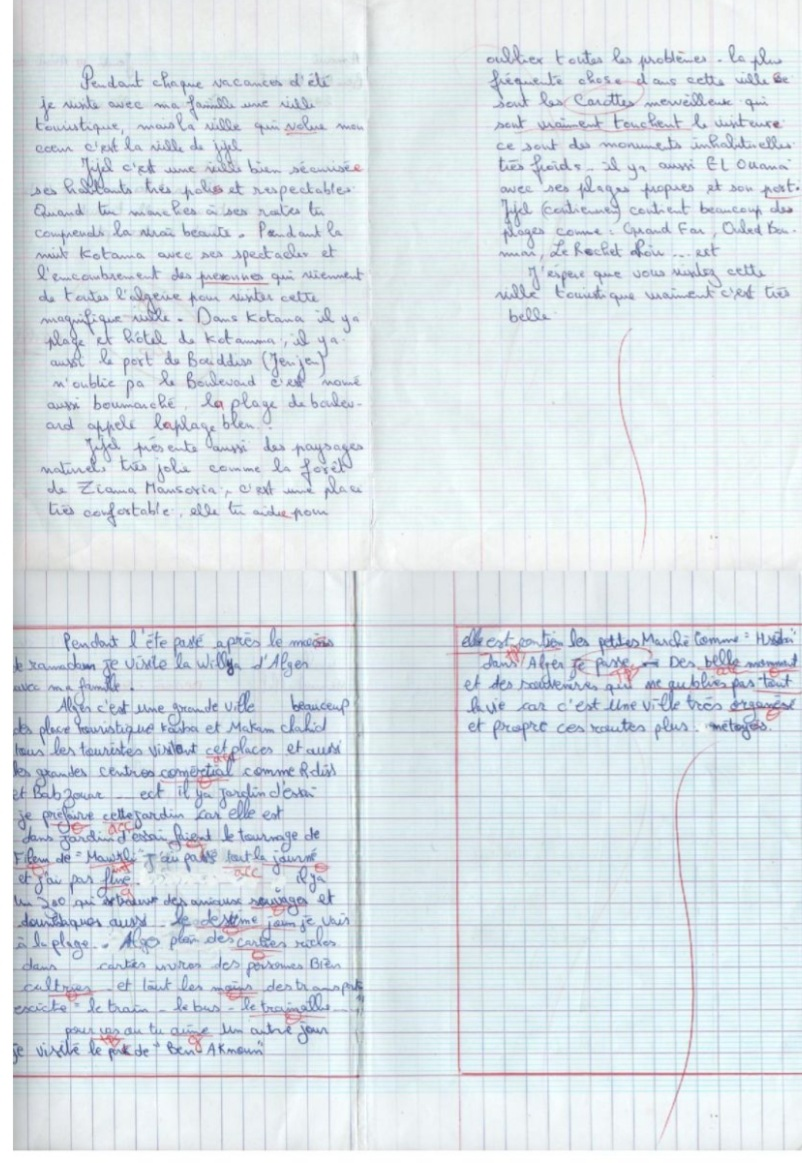 Pendant chaque vacances d'été
je visite avec ma famille une ville
touristique, mais la ville qui volue mon
cœur c'est la ville de jijel
Jijel c'est une ville bien sécurisée
ses habitants très polies et respectables.
Quand tu marches à ses routes tu
comprends la vrai beauté. Pendant la
nuit Kotama avec ses spectacles et
l'encombrement des presonnes qui viennent
de toutes l'algerie pour visiter cette
magnifique ville. Dans Kotana il ya
plage et hôtel de Kotamma, il ya
aussi le port de (Jenjen)
n'oublie pa le Boulevard c'est nomé
aussi boumarché, la plage de boulev-
ard appelé laplage bleu.
Jijel présente aussi des paysages
naturels très jolie comme la forêt
de Ziama Mansoria, c'est une place
très confortable, elle tu aidee pour
oublier toutes les problèmes. la plus
fréquente chose dans cette ville ce
sont les Carottes merveilleux qui
sont vraiment touchent le visiteure
ce sont des monuments inhabituelles
très froids... il ya aussi EL Ouana
avec ses plages propres et son port.
Jijel (contienne) contient beaucoup des
plages comme: Grand Far, Ouled Bou-
nai, Le Rochet Noir ... ect
J'éspère que vous visitez cette
ville touristique vraiment c'est très
belle.
Pendent l'éte passé après le mois
de ramadan je visite la Willya d'Alges
avec ma famille.
Alges c'est une grande ville beaucoup
des place touristique Kasba et Makam chahid
tous les touristes visitent cet places et aussi
les grandes centres comertial comme Rdis
et Bab Zouar ... ect il ya jardin d'essai
je prefaire cette jardin car elle est
dans jardin d'essai faient le tournage de
Filem de "Mawkli" j'ai passé tout la journé
et j'ai pas finé il ya
un zoo qui des animaux sauvages et
domistiques aussi le desième jour je vais
à la plage.. Alges plan des carties riches
dans carties uvres des persomes Bien
cultries et tout les moins des transports
exciste "le train - le bus - le trainaille ..."
pour vas ou tu aime Un autre jour
je visite le park de "Ben AKnoun"
elle est contien les petites Marché Comme "
dans Alges je passe Des belle moment
et des souvenires qui ne oublies pas tout
la vie car c'est une ville très organese
et propre ces routes plus netoyes.